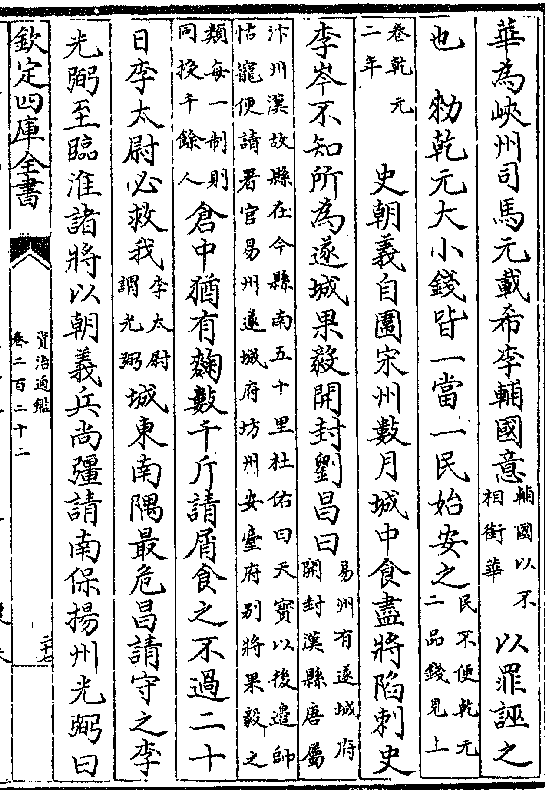 華為峽州司馬元載希李輔國意輔國以不相銜華以罪誣之
也　勑乾元大小錢皆一當一民始安之民不便乾元二品錢見上
卷乾元二年　史朝義自圍宋州數月城中食盡將陷刺史
李岑不知所為遂城果毅開封劉昌曰易州有遂城府開封漢縣唐屬
汴州漢故縣在今縣南五十里杜佑曰天寶以後邊帥怙寵便請署官易州遂城府坊州安臺府别將果毅之
類每一制則同授千餘人倉中猶有麴數千斤請屑食之不過二十
日李太尉必救我李太尉謂光弼城東南隅最危昌請守之李
光弼至臨淮諸將以朝義兵尚彊請南保揚州光弼曰
欽定四庫全書
資治通鑑
卷二百二十二